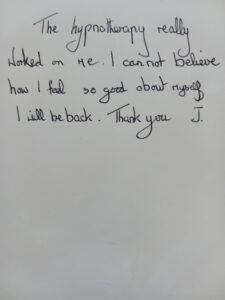 The hypnotherapy really
worked on me. I cannot believe
how I feel so good about myself
I will be back. Thank you J.